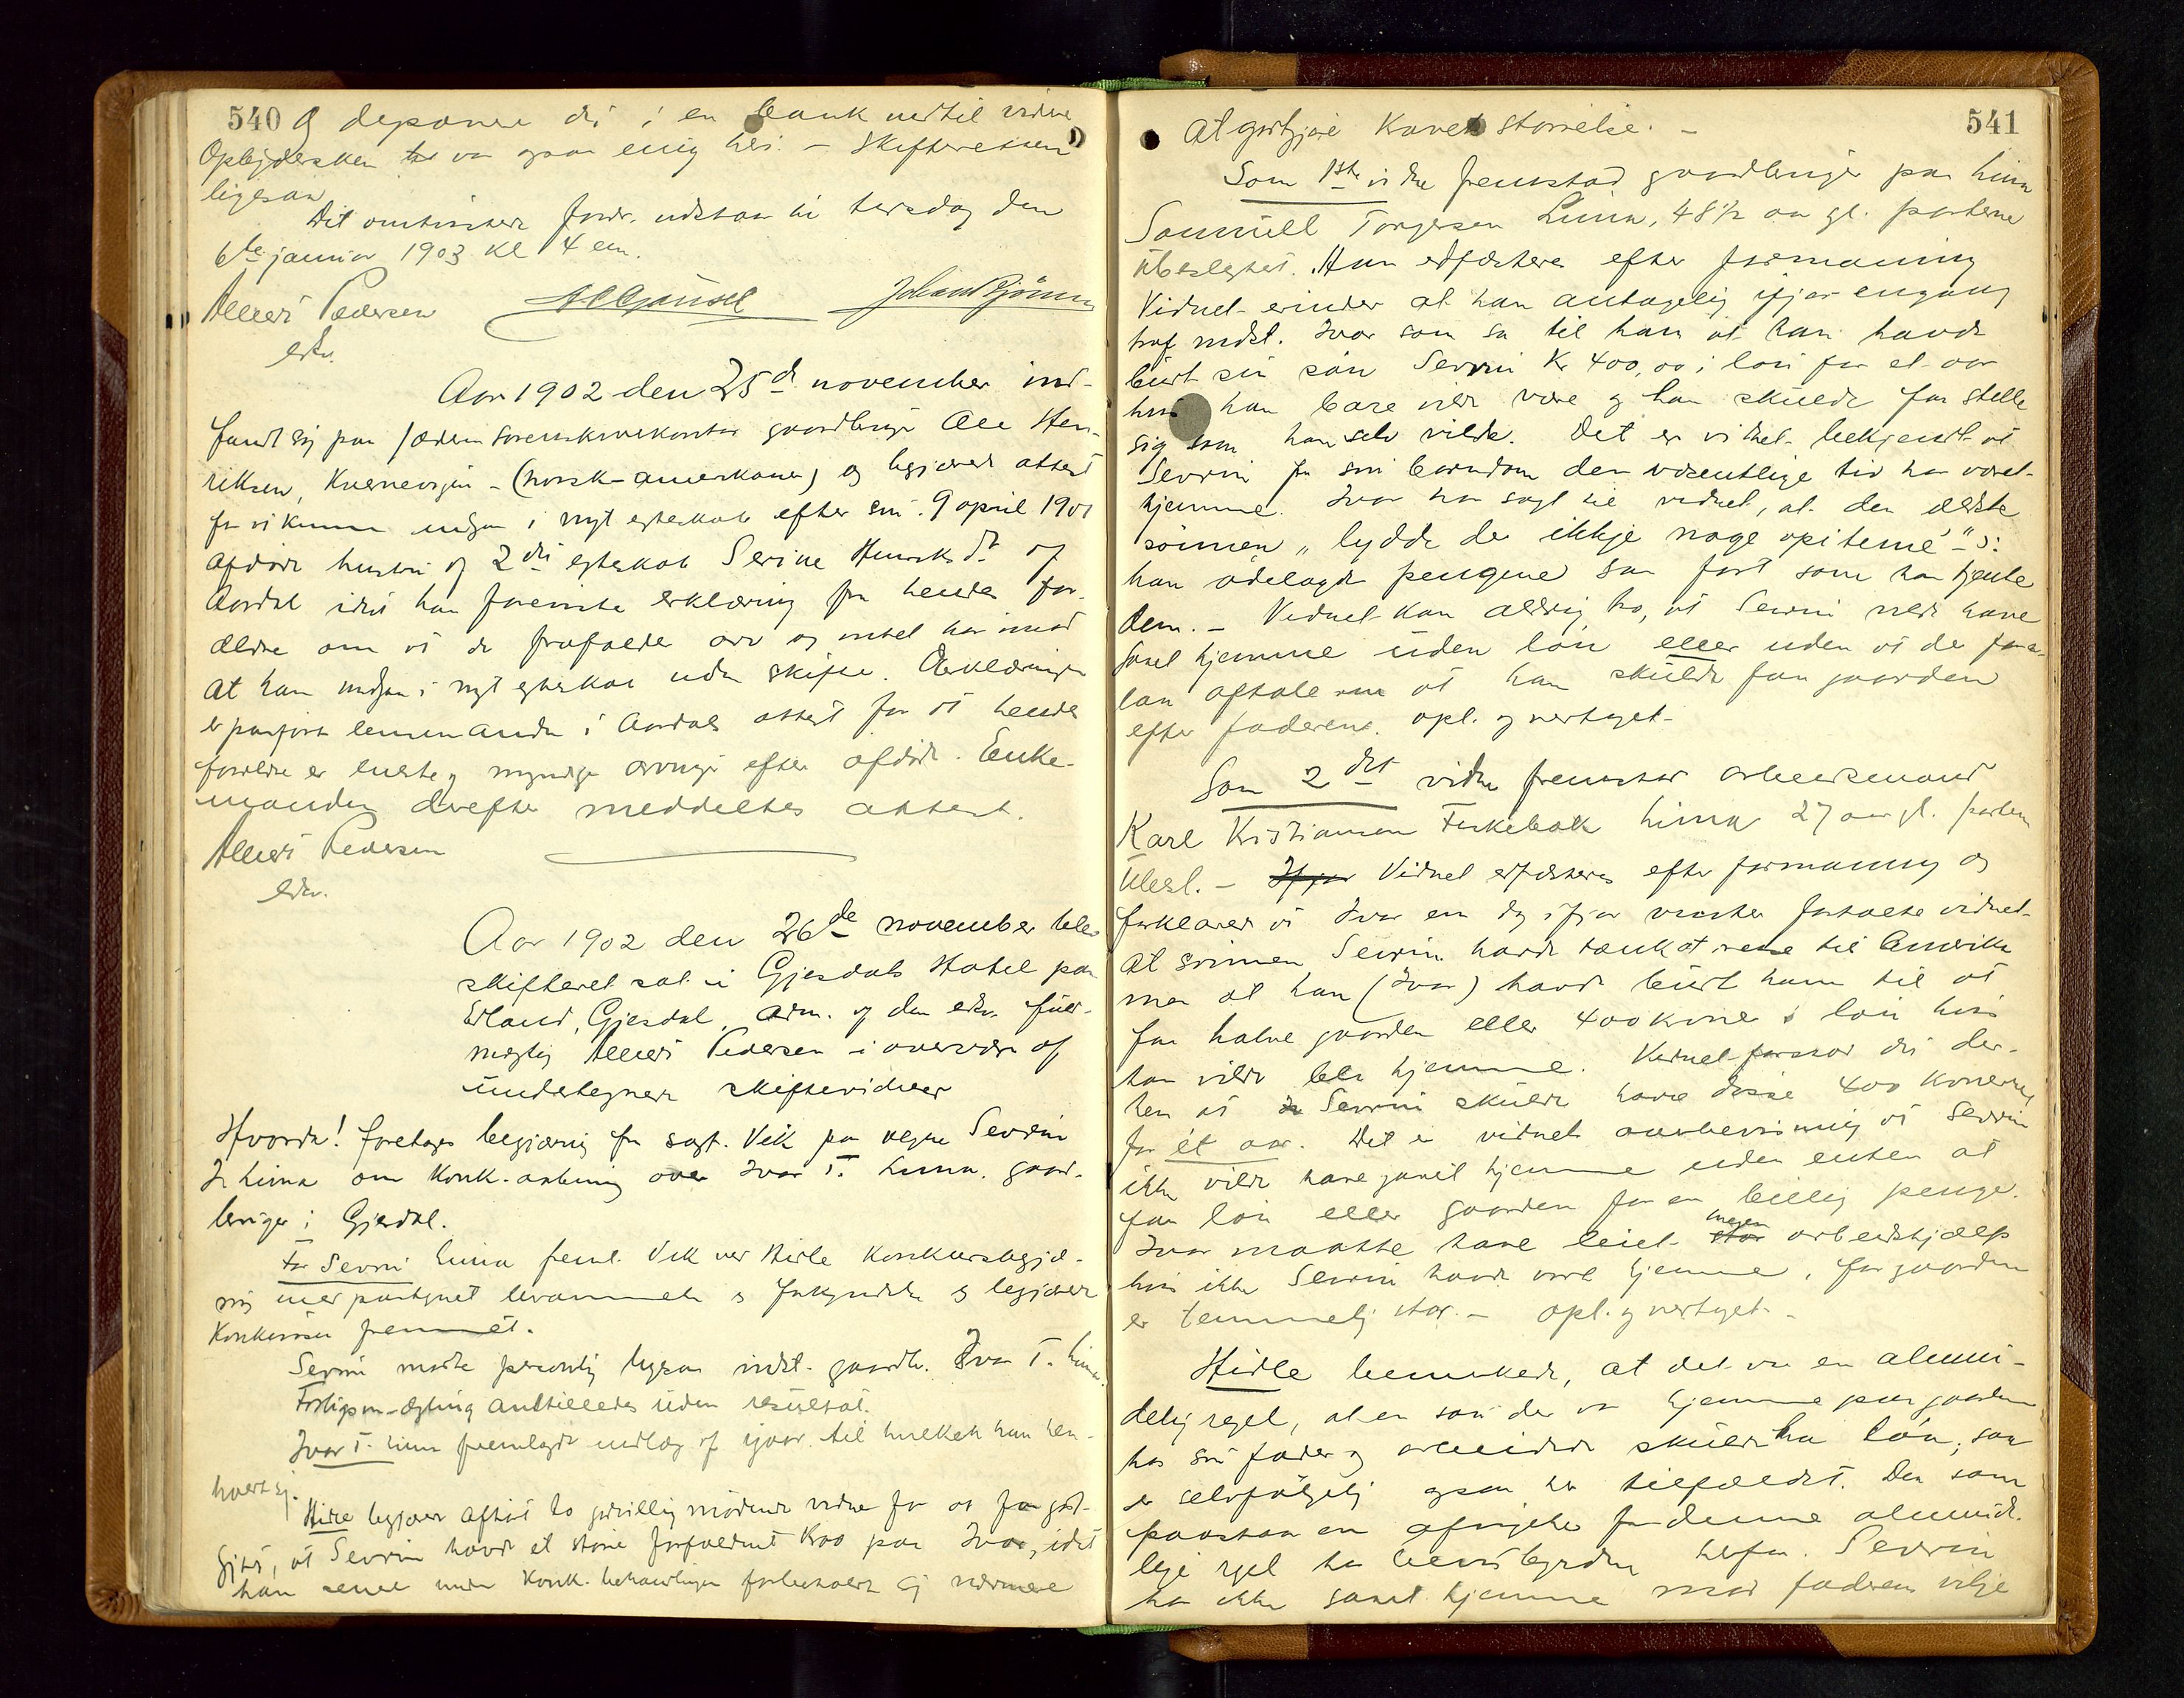 540 og deponere det i en bank indtil videre
Opbydersken var ogsaa enig heri. – Skifteretten
ligesaa
Det omtvistede fordr. udstaar til tirsdag den
6te januar 1903 kl 4 em.
Alleri Pedersen
edsv.
Aar 1902 den 25de november ind-
fandt sig paa Jæderens sorenskriverkontor gaardbruger Ole Hen-
riksen, Kvernevigen – (norsk-amerikaner) og begjærede attest
for at kunne indgaa i nyt egteskab efter sin 9 april 1901
afdøde hustru af 2det egteskab Serine Henriksdr. af
Aardal idet han foreviste erklæring fra hendes for-
ældre om at de frafalde arv og intet har imod
at han indgaar i nyt egteskab uden skifte. Erklæringen
er paaført lensmanden i Aardals attest for at hendes
forældre er eneste og myndige arvinger efter afdøde. Enke-
manden derefter meddeltes attest.
Alleri Pedersen
edsv.
Aar 1902 den 26de november blev
skifteret sat i Gjesdals Hotel paa
Eiland, Gjesdal, adm. af den edsv. fuld-
mægtig Alleri Pedersen i overvær af
undertegnede skiftevidner
Hvorda! foretoges begjæring fra sagf. Vik paa vegne Sevrin
I. Lima om konk. aabning over Ivar T. Lima, gaard-
bruger i Gjesdal.
For Sevrin Lima freml. Vik ved Hirle konkursbegjæ-
ring med paategnet berammelse og forkyndelse og begjærede
konkursen fremmet.
Sevrin mødte personlig ligesaa indst. gaardb. Ivar T. Lima.
Forligsmægling anstilledes uden resultat.
Ivar T. Lima fremlagde indlæg af igaar til hvilket han hen-
holdt sig.
Hirle begjærer afhørt to godvillig mødende vidner for at faa godt-
gjort, at Sevrin havde et større forfaldent krav paa Ivar, idet
han senere under konk. behandlingen forbeholdt sig nærmere
541
at godtgjøre kravets størrelse. –
Som 1ste vidne fremstod gaardbruger paa Lima
Samuell Torgersen Lima, 48½ aar gl. parterne
ubeslegtet. Han edfæstedes efter formaning
Vidnet erindrer at han antagelig ifjor engang
traf indst. Ivar som sa til ham at han havde
budt sin søn Sevrin Kr 400,00 i løn for et aar
hvis han bare vilde være og han skulde faa stelle
sig som han selv vilde. Det er vidnet bekjendt at
Sevrin fra sin barndom den væsentlige tid har været
hjemme. Ivar har sagt til vidnet, at den ældste
sønnen „lydde de ikkje noge opiteme" – ɔ:
han ødelagde pengene saa fort som han tjente
dem. – Vidnet kan aldrig tro, at Sevrin vilde have
gaaet hjemme uden løn eller uden at der fore-
laa aftale om at han skulde faa gaarden
efter faderen. opl. og vedtaget –
Som 2det vidne fremstod arbeidsmand
Karl Kristiansen Fiskebæk Lima 27 aar gl. parterne
ubesl. – Vidnet edfæstedes efter formaning og
forklarer at Ivar en dag ifjor vinter fortalte vidnet
at sønnen Sevrin havde tænkt at reise til Amerika
men at han (Ivar) havde budt ham til at
faa halve gaarden eller 400 kroner i løn hvis
han vilde bli hjemme. Vidnet forstod det der-
hen at Sevrin skulde have disse 400 kronerne
for ét aar. Det er vidnets overbevisning at Sevrin
ikke vilde have gaaet hjemme uden enten at
faa løn eller gaarden for en billig penge.
Ivar maatte have leiet megen arbeidshjælp
hvis ikke Sevrin havde vært hjemme, for gaarden
er temmelig stor. – opl. og vedtaget –
Hirle bemerkede, at det var en almin-
delig regel, at en søn der var hjemme paa gaarden
hos sin fader og arbeidede skulde ha løn, saa
er selvfølgelig ogsaa her tilfældet. Den som
paastaar en afvigelse fra denne alminde-
lige regel har bevisbyrden herfor. Sevrin
har ikke gaaet hjemme mod faderens vilje